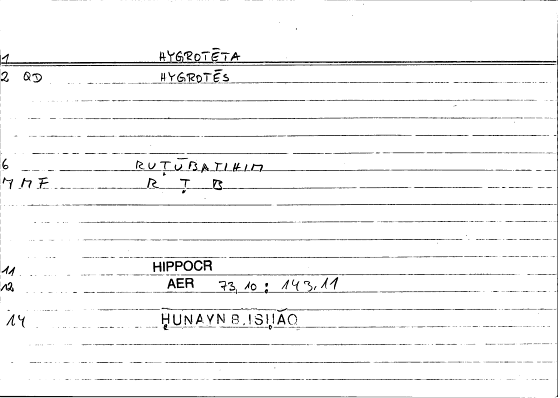 1 HYGROTĒTA
2 QD HYGROTĒS
6 RUṬŪBATIHIM
7 MF R Ṭ B
11 HIPPOCR
12 AER 73,10 : 143,11
14 ḤUNAYN B.ISḤĀQ